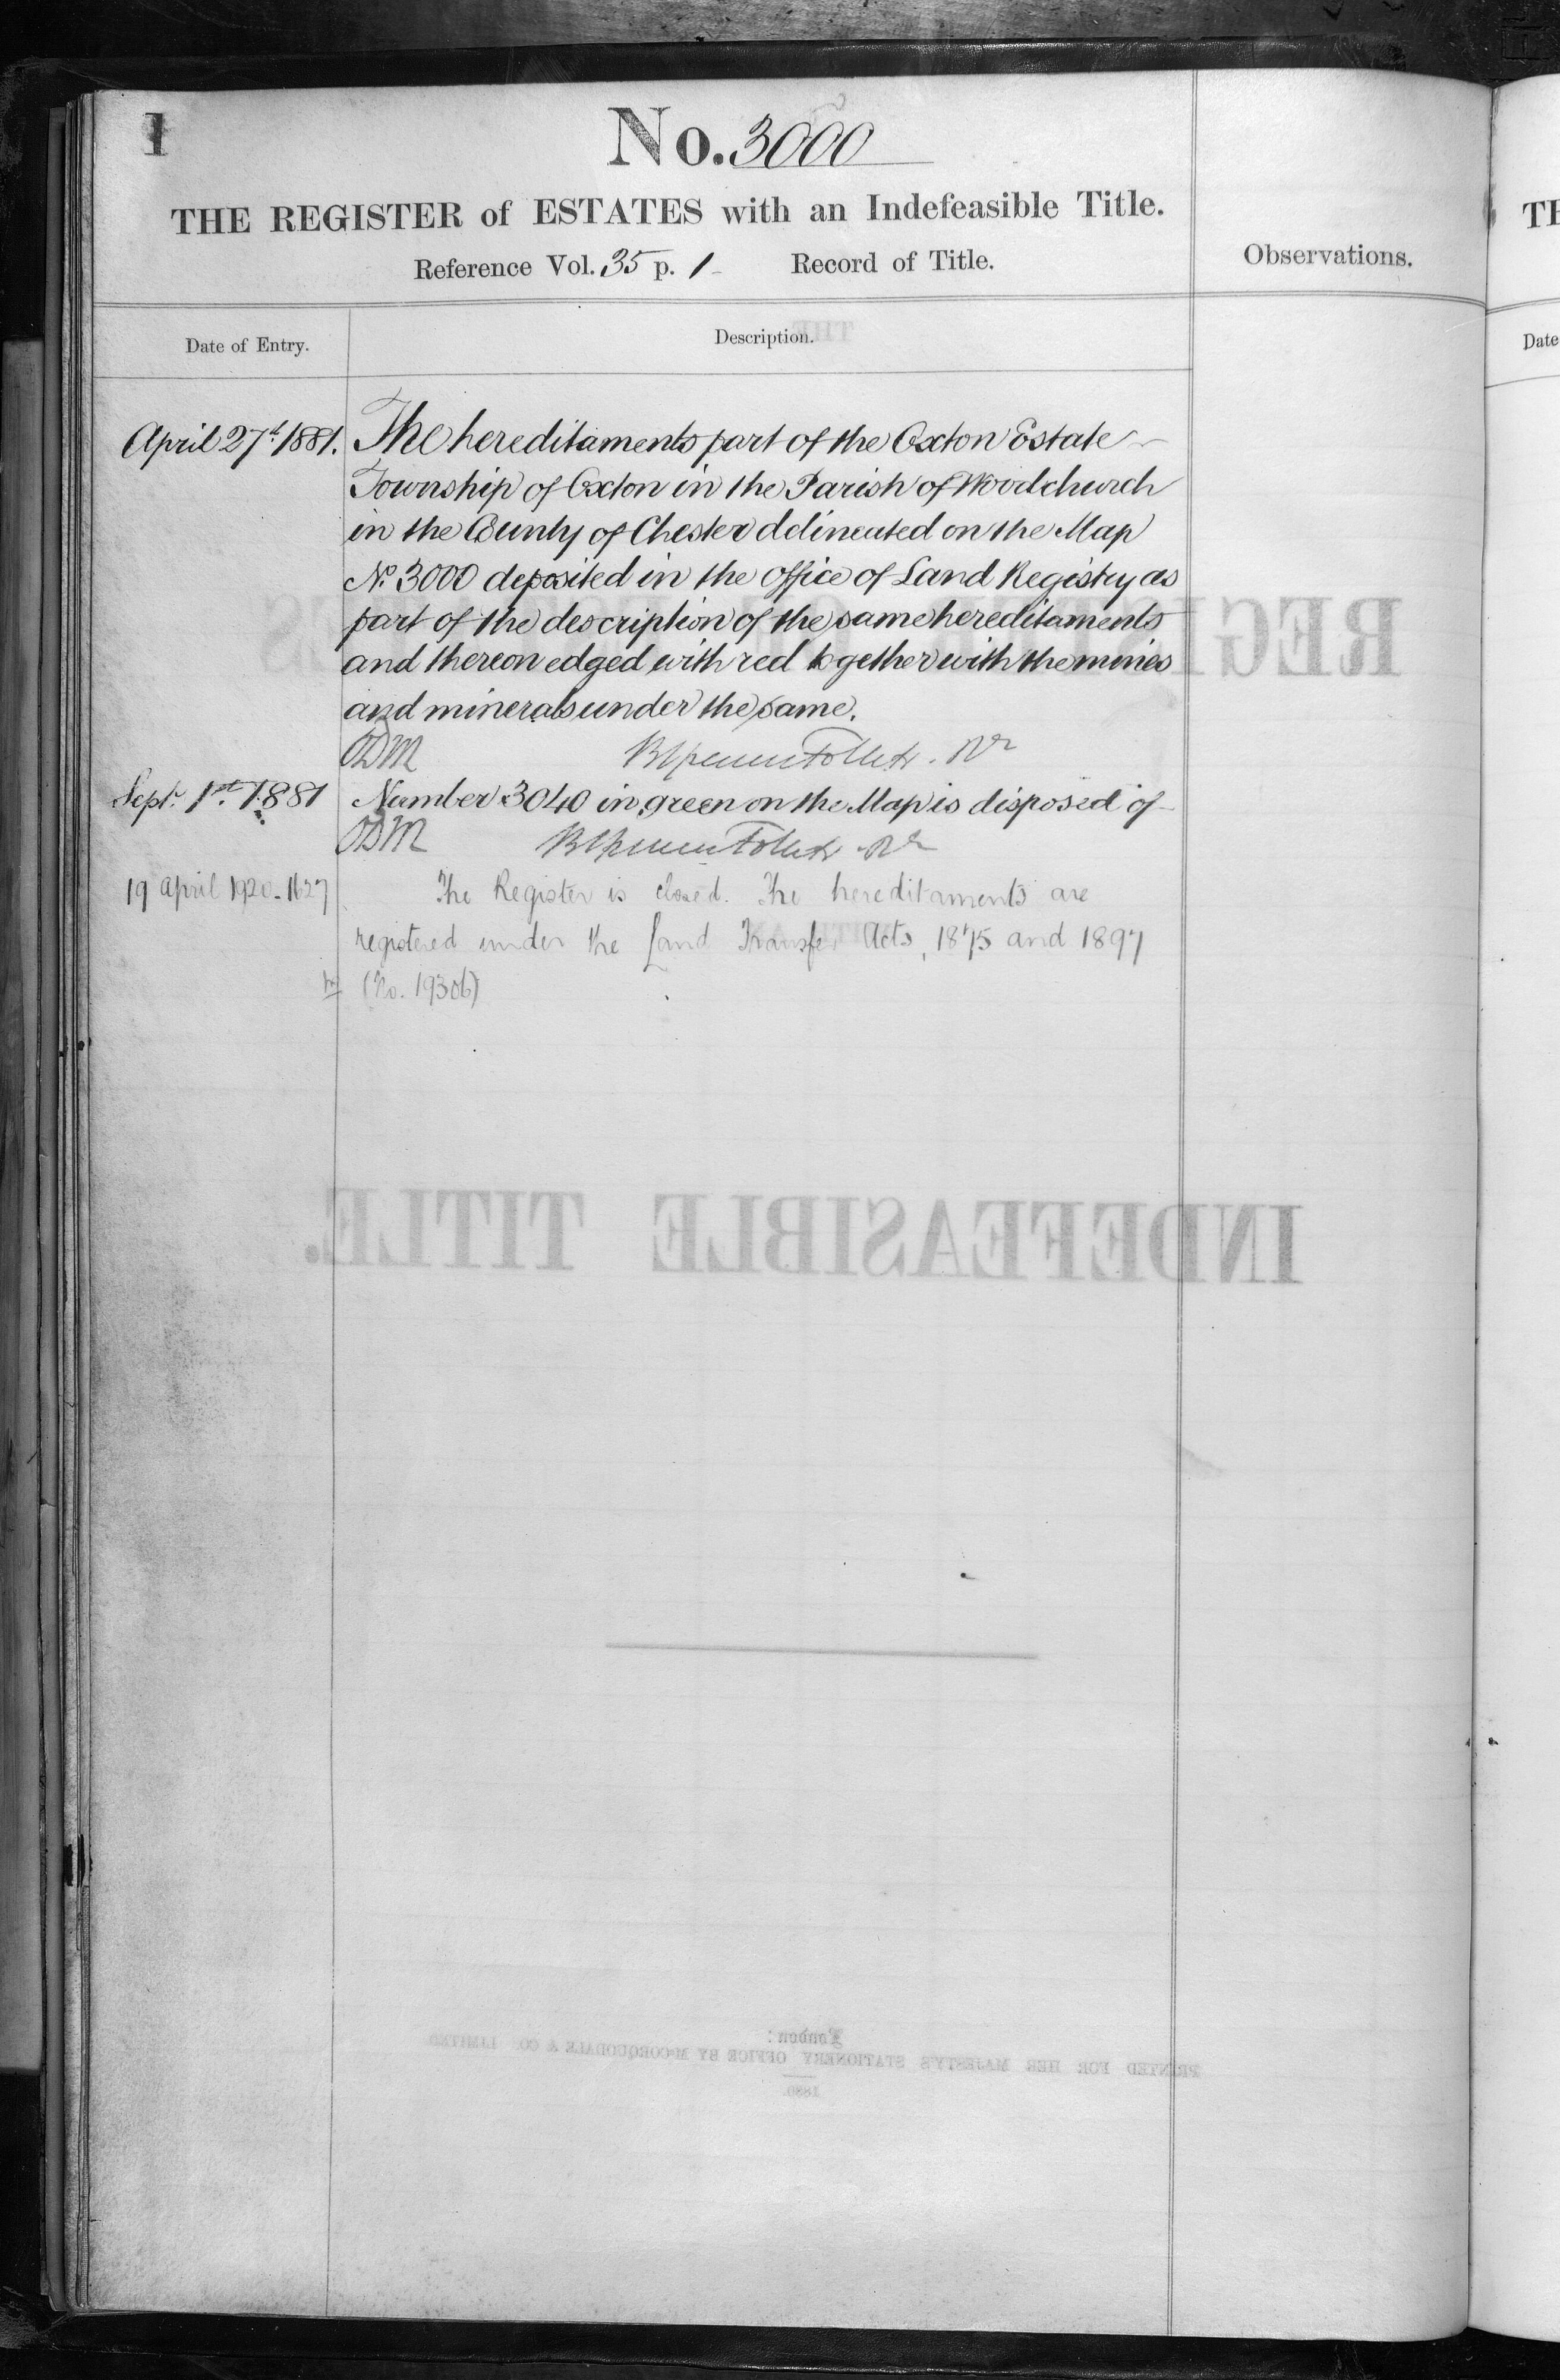 1
No. 3000
THE REGISTER of ESTATES with an Indefeasible Title.
Reference Vol. 35 p. 1 Record of Title.
Observations.
Date of Entry.
Description.
April 27th 1881. The hereditaments part of the Oxton Estate
Township of Oxton in the Parish of Woodchurch
in the County of Chester delineated on the Map
No. 3000 deposited in the office of Land Registry as
part of the description of the same hereditaments
and thereon edged with red together with the mines
and minerals under the same.
Sept. 1st 1881 Number 3040 in green on the Map is disposed of
19 April 1920 The Register is closed. The hereditaments are
registered under the Land Transfer Acts, 1875 and 1897
(No. 19306)
TH
Date
REGIS
INDEFEASIBLE TITLE.
London:
PRINTED FOR HER MAJESTY'S STATIONERY OFFICE BY McCORQUODALE & CO. LIMITED
1880.